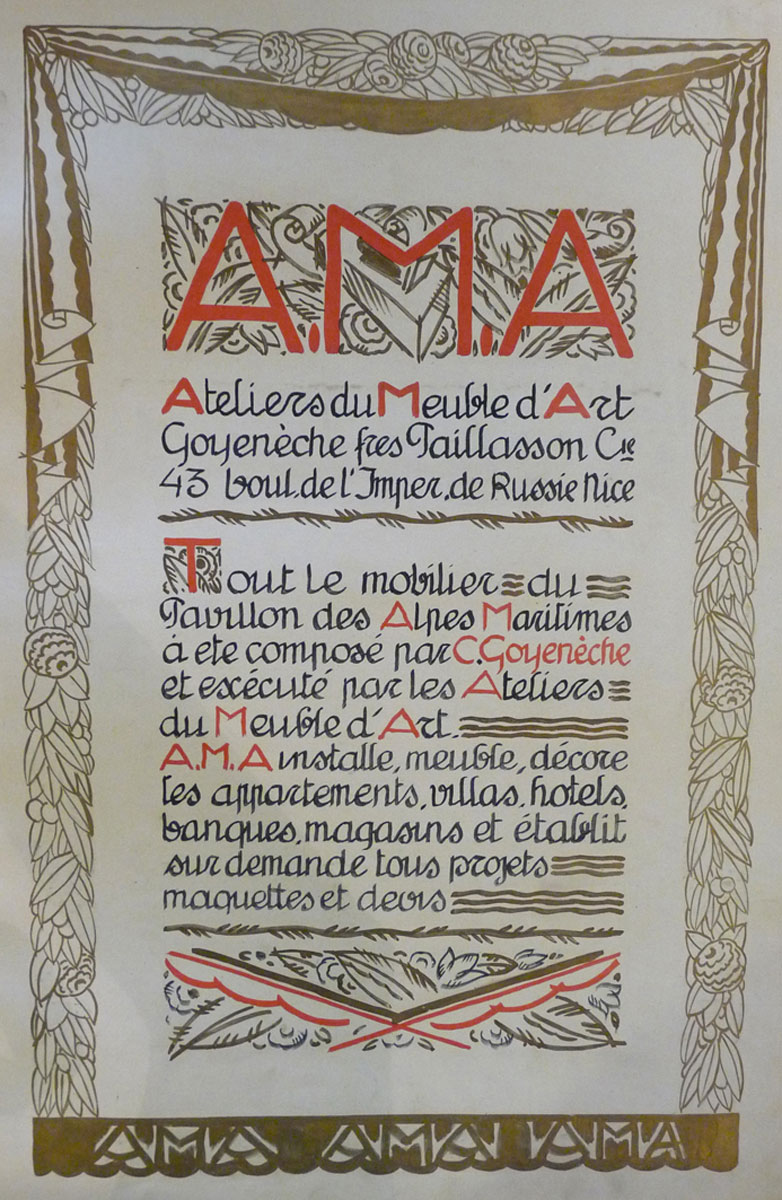 A.M.A
Ateliers du Meuble d'Art
Goyenèche fres Taillasson Cie
43 boul. de l'Imper. de Russie Nice
Tout le mobilier du
Pavillon des Alpes Maritimes
à ete composé par C. Goyenèche
et exécuté par les Ateliers
du Meuble d'Art.
A.M.A installe, meuble, décore
les appartements, villas, hotels,
banques, magasins et établit
sur demande tous projets
maquettes et devis
AMA AMA AMA